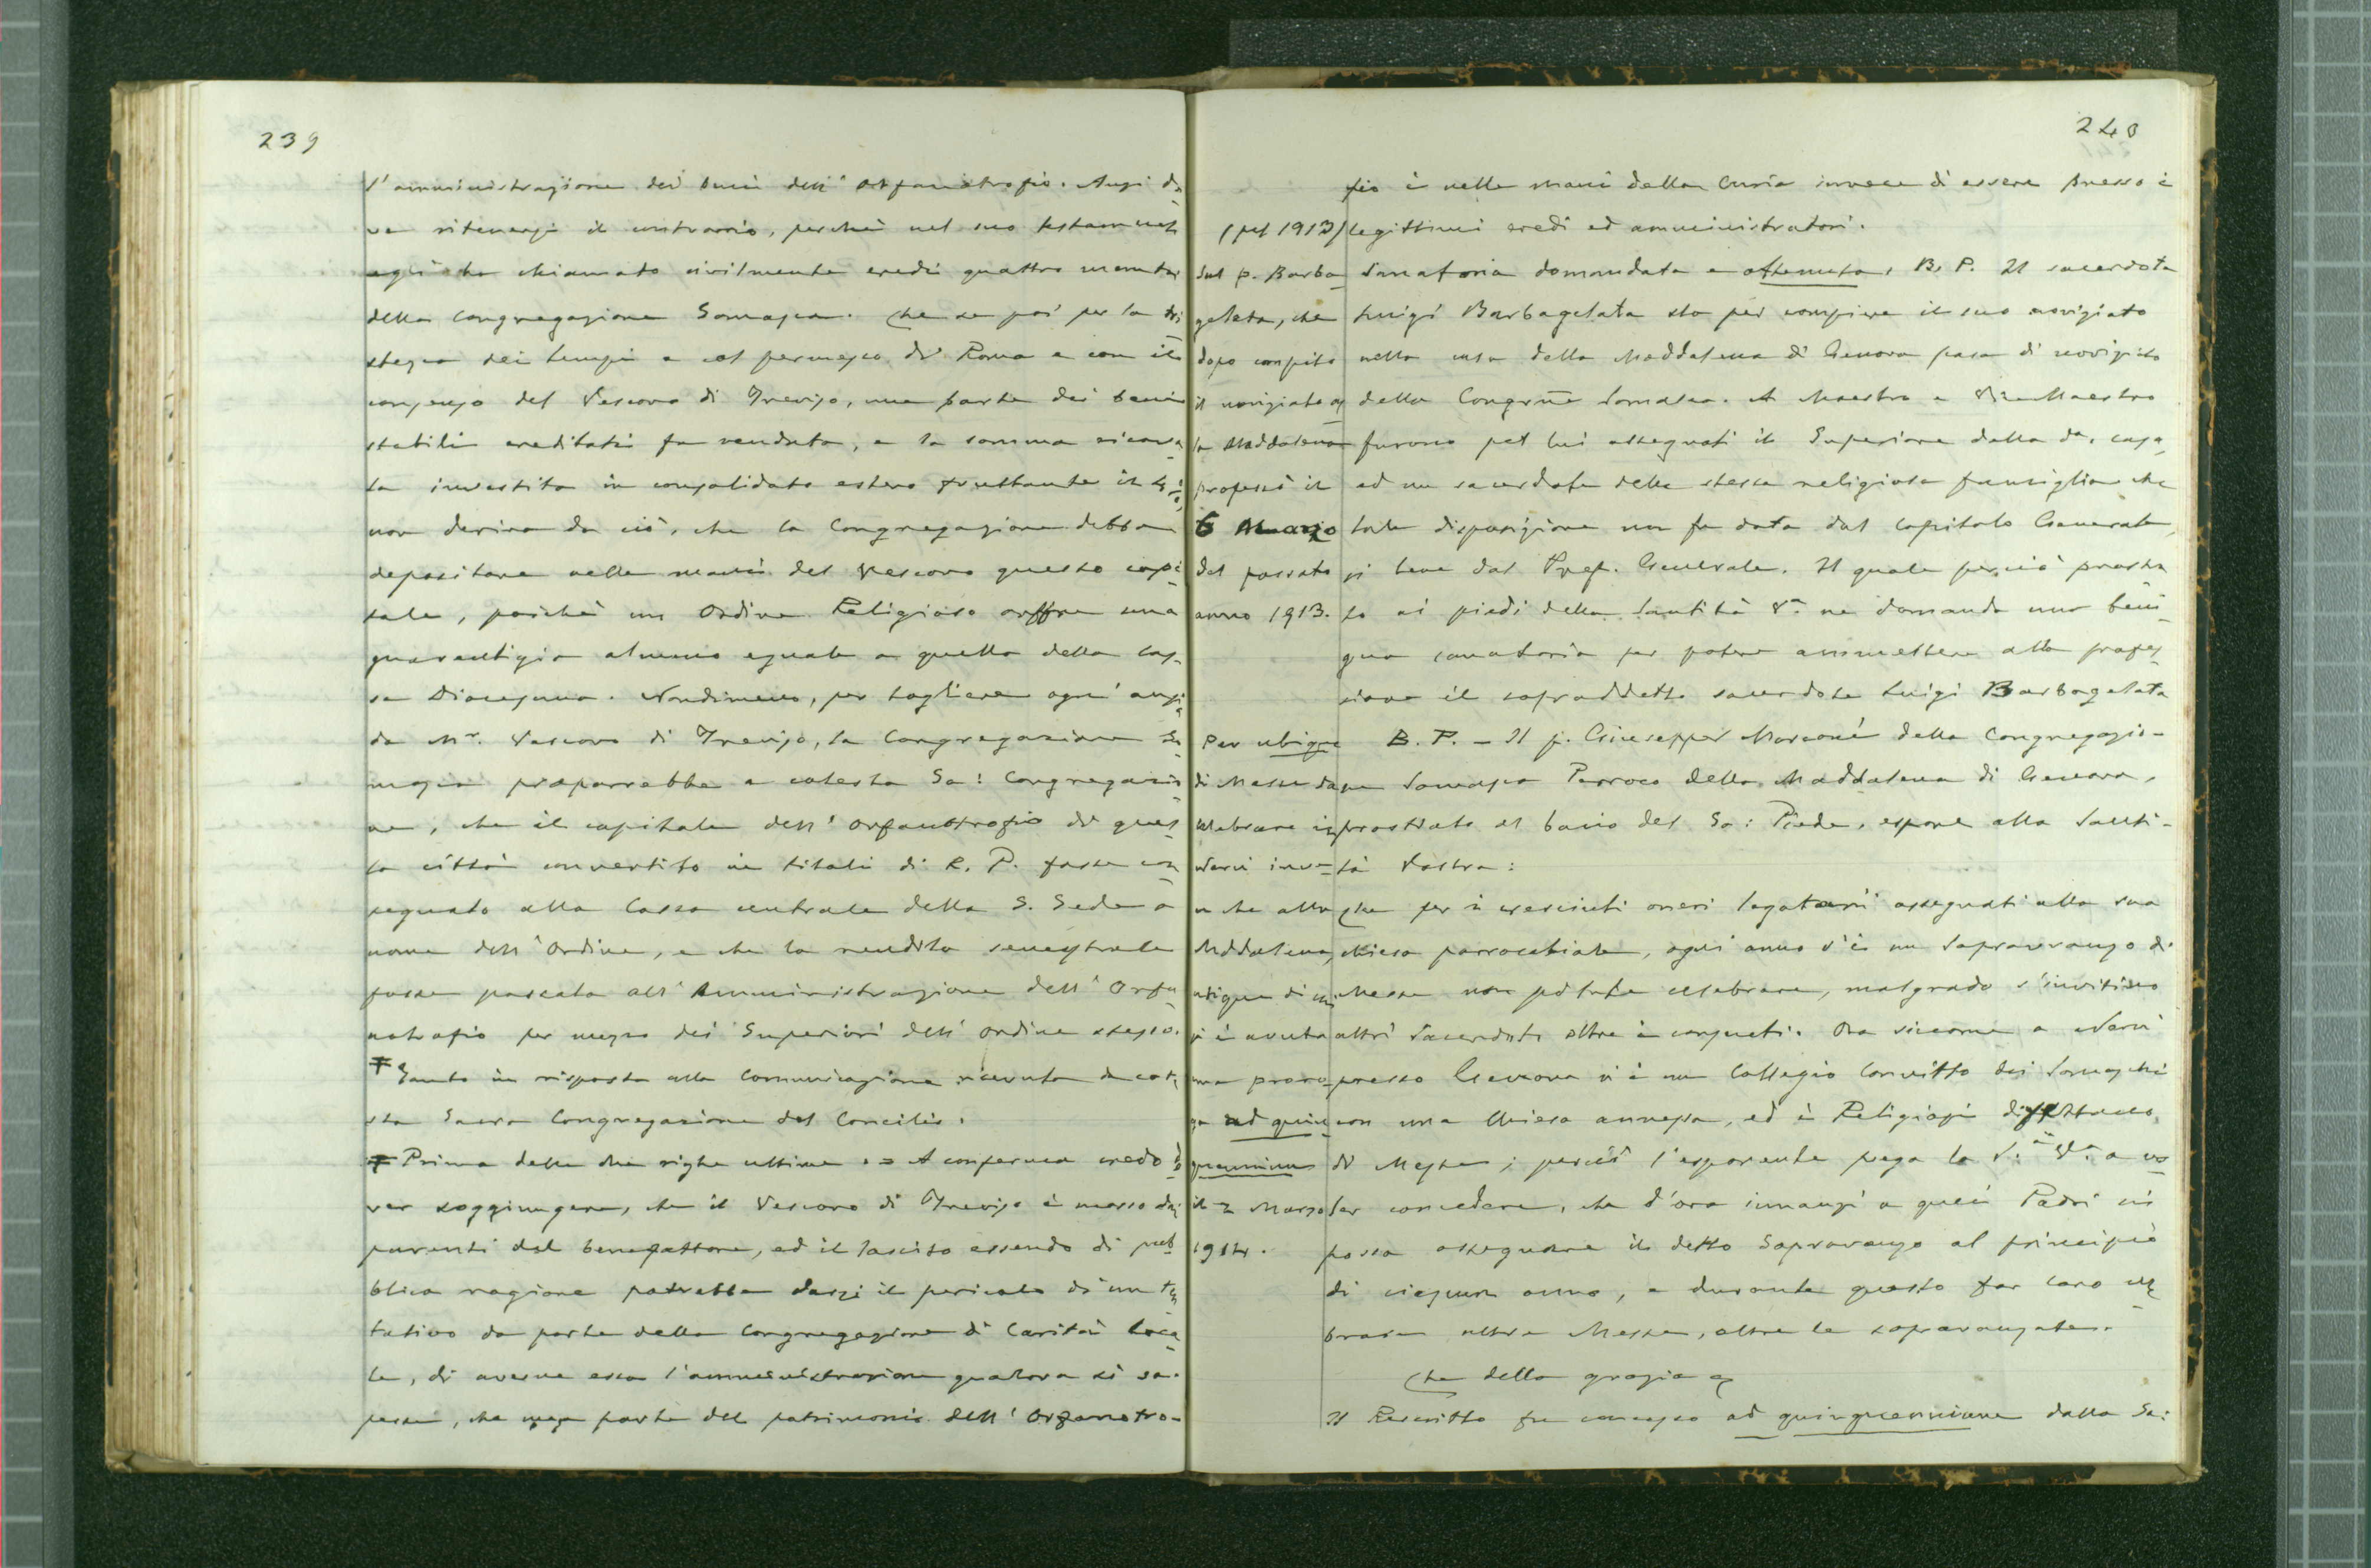 239
l'amministrazione dei beni dell'Orfanotrofio. Anzi de
ve ritenersi il contrario, perchè nel suo testamento
egli ha chiamato civilmente eredi quattro membri
della Congregazione Somasca. Che se poi per la tri
stezza dei tempi e col permesso di Roma e con il
consenso del Vescovo di Treviso, una parte dei beni
stabili ereditati fu venduta, e la somma ricava
ta investita in consolidato estero fruttante il 4%
non deriva da ciò, che la Congregazione debba
depositare nelle mani del Vescovo questo capi
tale, poichè un Ordine Religioso offre una
guarentigia almeno eguale a quella della Cas
sa Diocesana. Nondimeno, per togliere ogni ansia
da Mr. Vescovo di Treviso, la Congregazione So
masca proporrebbe a cotesta Sa: Congregazio
ne, che il capitale dell'Orfanotrofio di ques
ta città convertito in titoli di R. P. fosse con
segnato alla Cassa centrale della S. Sede a
nome dell'Ordine, e che la rendita semestrale
fosse passata all'Amministrazione dell'Orfa
notrofio per mezzo dei Superiori dell'Ordine stesso.
Ŧ Tanto in risposta alla comunicazione ricevuta da cote
sta Sacra Congregazione del Concilio.
Ŧ Prima delle due righe ultime = A conferma credo do
ver soggiungere, che il Vescovo di Treviso è mosso dai
parenti del benefattore, ed il lascito essendo di pub
blica ragione potrebbe darsi il pericolo di un ten
tativo da parte della Congregazione di Carità loca
le, di averne essa l'amministrazione qualora si sa-
pesse, che una parte del patrimonio dell'Orfanotro-
240
fio è nelle mani della Curia invece di essere presso i
legittimi eredi ed amministratori.
(pel 1913)
Sul p. Barba
gelata, che
dopo compito
il noviziato al
la Maddalena
professò il
6 Marzo
del passato
anno 1913.
Sanatoria domandata e ottenuta. B. P. Il sacerdote
Luigi Barbagelata sta per compiere il suo noviziato
nella casa della Maddalena di Genova casa di noviziato
della Congrne Somasca. A Maestro e Vice Maestro
furono pel lui assegnati il Superiore della da. casa
ed un sacerdote della stessa religiosa famiglia che
tale disposizione non fu data dal Capitolo Generale,
si bene dal Prep. Generale. Il quale perciò prostra
to ai piedi della Santità Va. ne domanda una beni
gna sanatoria per potere ammettere alla profes
sione il sopraddetto sacerdote Luigi Barbagelata
Per ubique
di Messe da
celebrare in
Nervi inve-
ce che alla
Maddalena,
ubique di cui
si è avuta
una proro
ga ad quin
quennium
il 2 Marzo
1914.
B. P. - Il p. Giuseppe Marconi della Congregazio-
ne Somasca Parroco della Maddalena di Genova,
prostrato al bacio del Sa: Piede, espone alla Santi-
tà Vostra:
Che per i cresciuti oneri legatarii assegnati alla sua
chiesa parrocchiale, ogni anno v'è un sopravanzo di
Messe non potute celebrare, malgrado s'invitino
altri Sacerdoti oltre i consueti. Ora siccome a Nervi
presso Genova vi è un Collegio Convitto dei Somaschi
con una Chiesa annessa, ed i Religiosi difettano
di Messe; perciò l'esponente prega la S.tà Va. a vo
ler concedere, che d'ora innanzi a quei Padri si
possa assegnare il detto sopravanzo al principio
di ciascun anno, e durante questo far loro cele
brare altre Messe, oltre le sopravanzate.
Che della grazia
Il Rescritto fu concesso ad quinquennium dalla Sa: